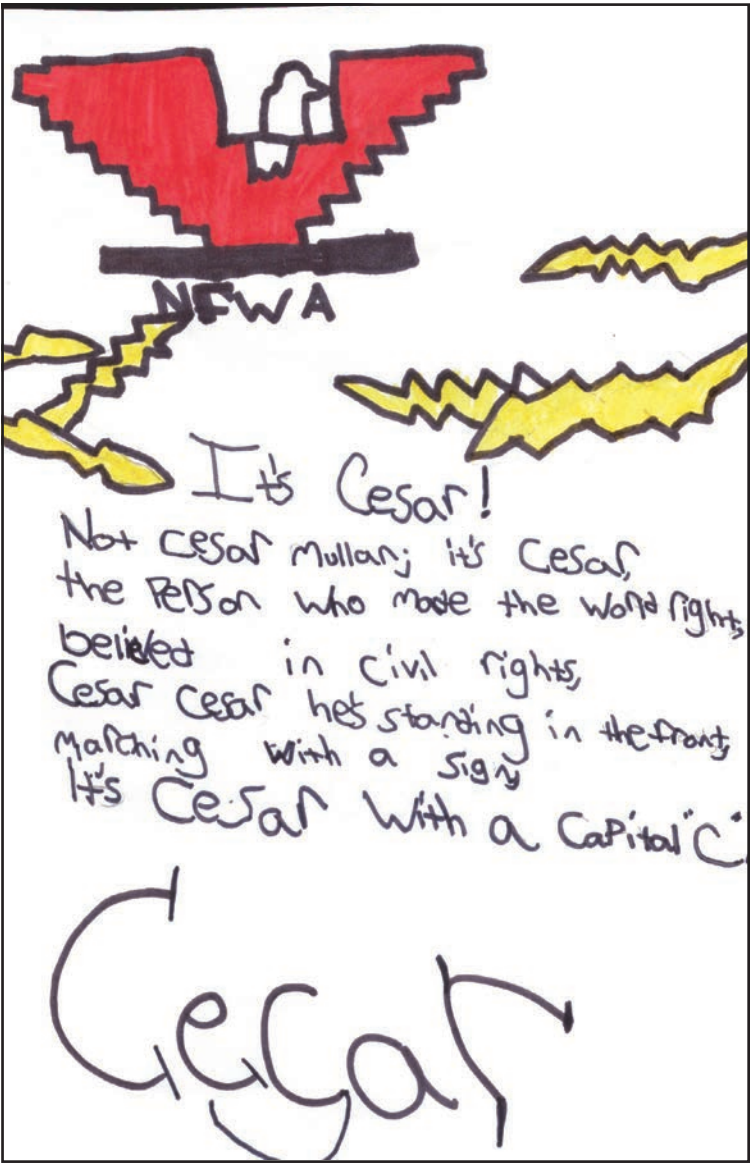 NFWA
It's Cesar!
Not Cesar Mullan; it's Cesar,
the Person who made the world right,
believed in civil rights,
Cesar Cesar he's standing in the front,
marching with a sign,
It's Cesar with a Capital "C".
Cesar